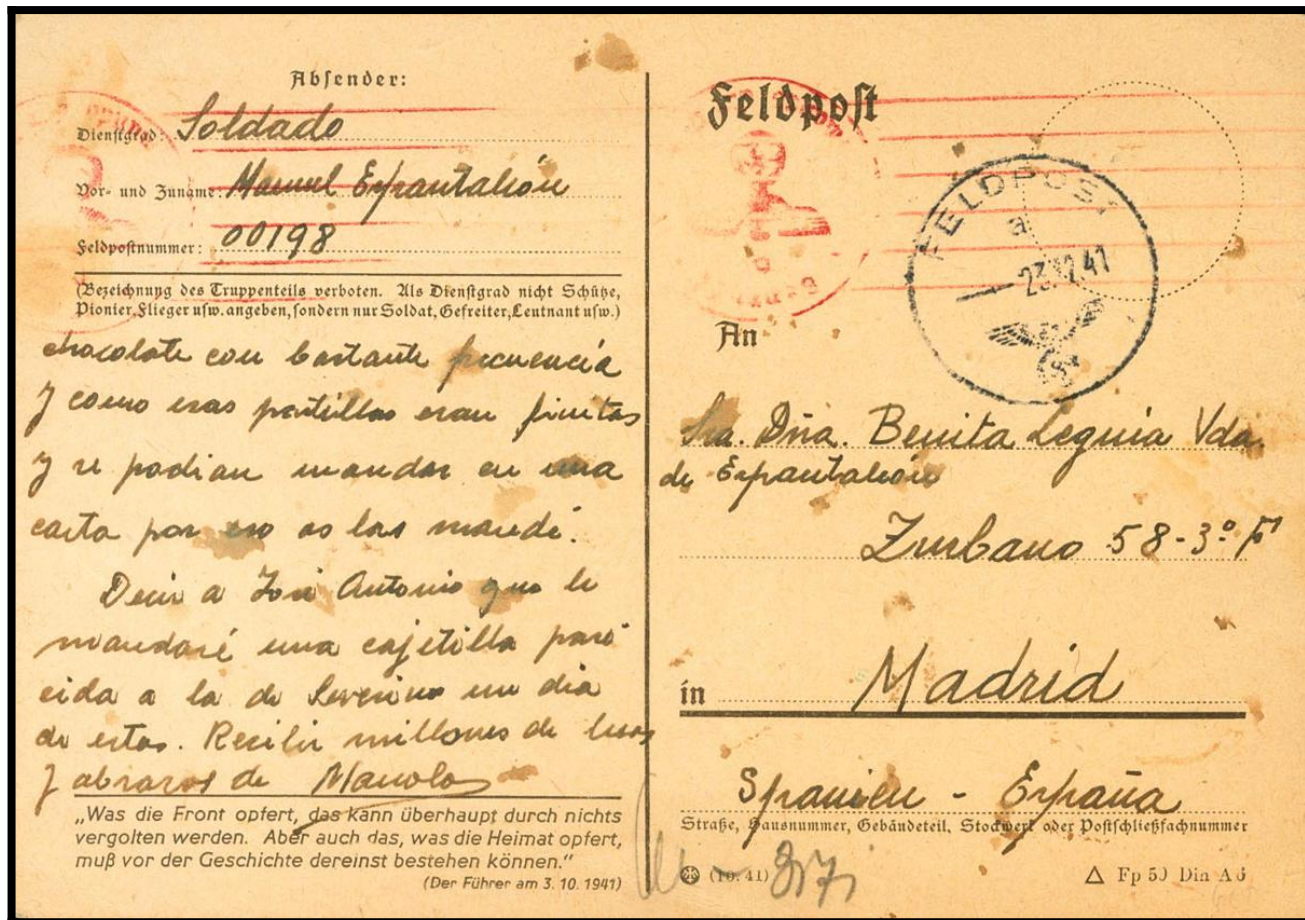 Absender:
Dienstgrad: Soldado
Vor- und Zuname: Manuel Espantalión
Feldpostnummer: 00198
(Bezeichnung des Truppenteils verboten. Als Dienstgrad nicht Schütze,
Pionier, Flieger usw. angeben, sondern nur Soldat, Gefreiter, Leutnant usw.)
chocolate con bastante frecuencia
y como esas pastillas eran finitas
y se podian mandar en una
carta por eso os las mandé.
Decir a José Antonio que le
mandaré una cajetilla pare
cida a la de Severino un dia
de estos. Recibir millones de besos
y abrazos de Manolo
„Was die Front opfert, das kann überhaupt durch nichts
vergolten werden. Aber auch das, was die Heimat opfert,
muß vor der Geschichte dereinst bestehen können."
(Der Führer am 3. 10. 1941)
Feldpost
FELDPOST
a
23.12.41
An
Sra. Dña. Benita Leguia Vda.
de Espantalión
Zurbano 58-3º
in Madrid
Spanien - España
Straße, Hausnummer, Gebäudeteil, Stockwerk oder Postschließfachnummer
(10. 41)
Fp 50 Din A6